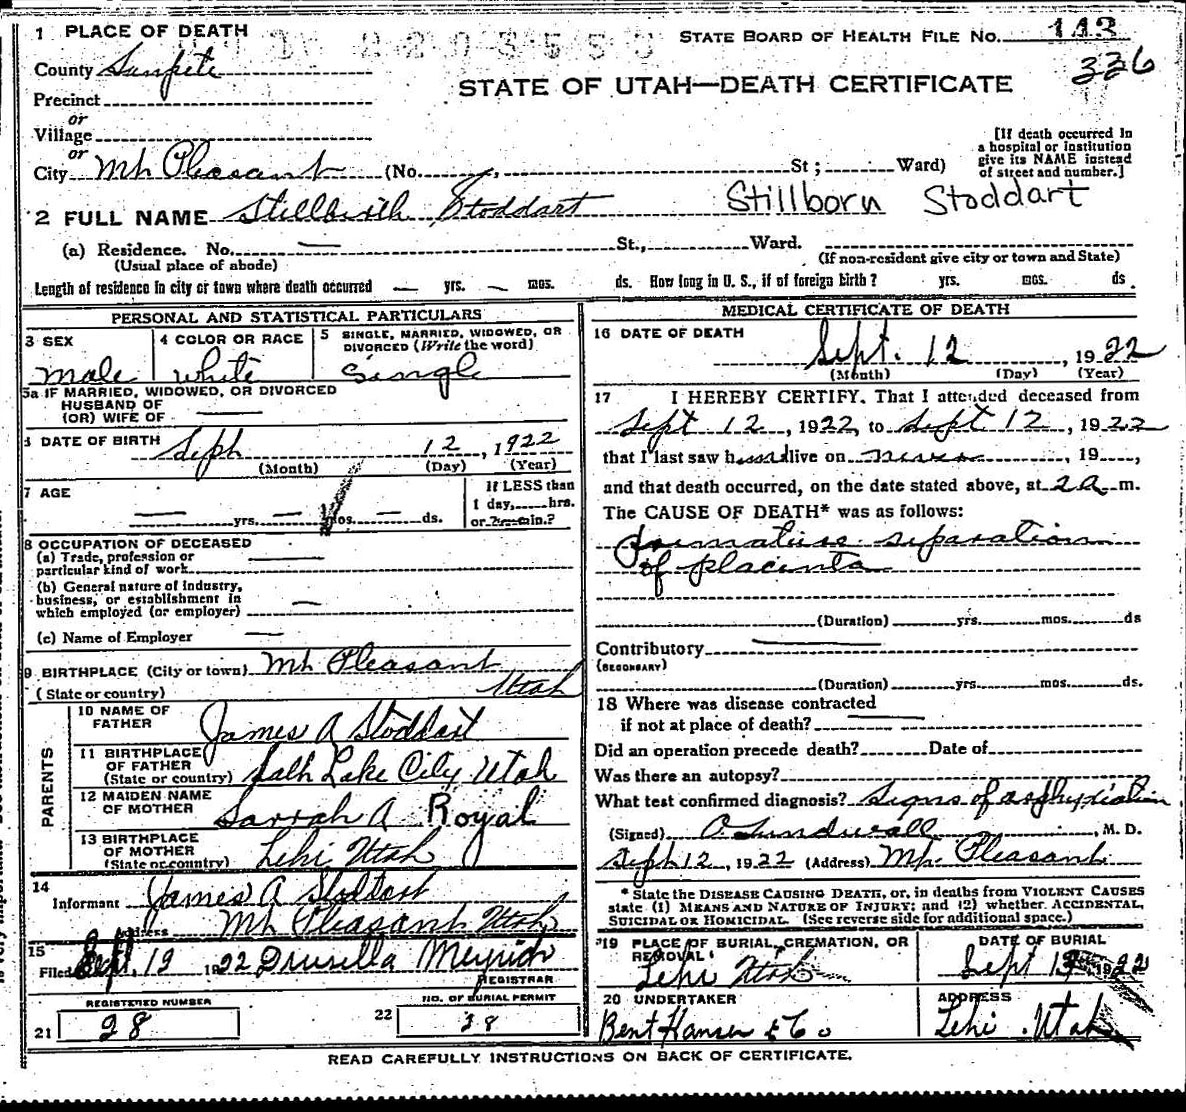 1 PLACE OF DEATH
STATE BOARD OF HEALTH FILE NO. 143
County Sanpete
336
STATE OF UTAH—DEATH CERTIFICATE
Precinct
or
Village
or
City Mt Pleasant (No. St; Ward)
[If death occurred in
a hospital or institution
give its NAME instead
of street and number.]
2 FULL NAME Stillbirth Stoddart Stillborn Stoddart
(a) Residence. No. — St., Ward.
(Usual place of abode) (If non-resident give city or town and State)
Length of residence in city or town where death occurred — yrs. — mos. ds. How long in U. S., if of foreign birth? yrs. mos. ds.
PERSONAL AND STATISTICAL PARTICULARS
3 SEX 4 COLOR OR RACE 5 SINGLE, MARRIED, WIDOWED, OR
DIVORCED (Write the word)
Male White Single
5a IF MARRIED, WIDOWED, OR DIVORCED
HUSBAND OF
(OR) WIFE OF —
6 DATE OF BIRTH Sept 12, 1922
(Month) (Day) (Year)
7 AGE If LESS than
1 day, hrs.
— yrs. — mos. — ds. or min.?
8 OCCUPATION OF DECEASED
(a) Trade, profession or
particular kind of work —
(b) General nature of industry,
business, or establishment in
which employed (or employer) —
(c) Name of Employer —
9 BIRTHPLACE (City or town) Mt Pleasant
(State or country) Utah
PARENTS
10 NAME OF
FATHER James A Stoddart
11 BIRTHPLACE
OF FATHER
(State or country) Salt Lake City Utah
12 MAIDEN NAME
OF MOTHER Sarrah A Royal
13 BIRTHPLACE
OF MOTHER
(State or country) Lehi Utah
14
Informant James A Stoddart
Address Mt Pleasant Utah
15
Filed Sept. 12 1922 Drusilla
REGISTRAR
REGISTERED NUMBER NO. OF BURIAL PERMIT
21 28 22 38
MEDICAL CERTIFICATE OF DEATH
16 DATE OF DEATH
Sept. 12, 1922
(Month) (Day) (Year)
17 I HEREBY CERTIFY, That I attended deceased from
Sept 12, 1922, to Sept 12, 1922
that I last saw h alive on never, 19,
and that death occurred, on the date stated above, at 2 a m.
The CAUSE OF DEATH* was as follows:
Premature separation
of placenta
(Duration) yrs. mos. ds
Contributory —
(SECONDARY)
(Duration) yrs. mos. ds.
18 Where was disease contracted
if not at place of death? —
Did an operation precede death? Date of
Was there an autopsy?
What test confirmed diagnosis? Signs of asphyxiation
(Signed) O. Sundwall, M. D.
Sept 12, 1922 (Address) Mt. Pleasant
* State the DISEASE CAUSING DEATH, or, in deaths from VIOLENT CAUSES
state (1) MEANS AND NATURE OF INJURY; and (2) whether ACCIDENTAL,
SUICIDAL OR HOMICIDAL. (See reverse side for additional space.)
19 PLACE OF BURIAL, CREMATION, OR
REMOVAL
Lehi Utah
DATE OF BURIAL
Sept 13 1922
20 UNDERTAKER
Bent Hansen & Co
ADDRESS
Lehi Utah
READ CAREFULLY INSTRUCTIONS ON BACK OF CERTIFICATE.